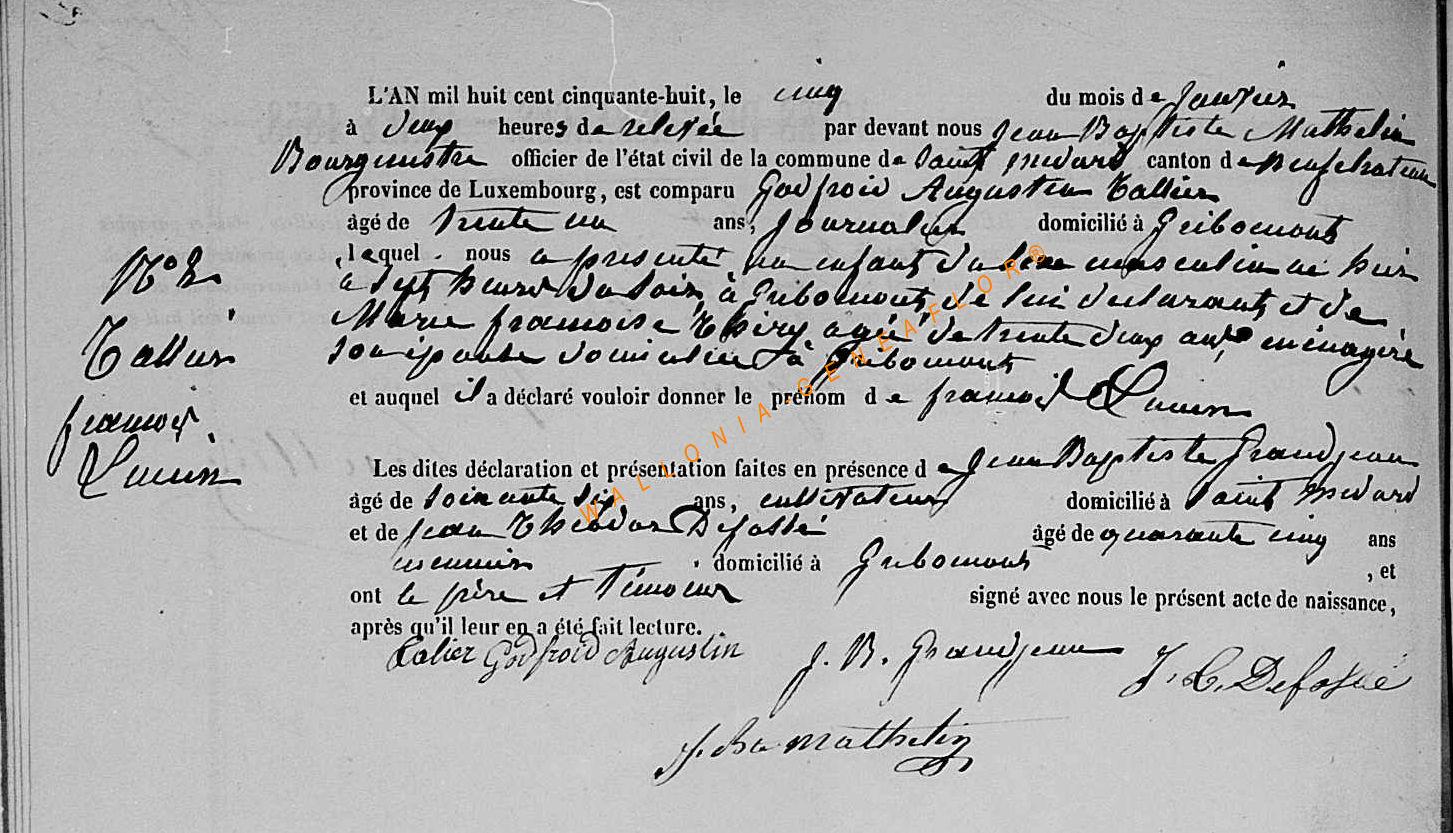 L'AN mil huit cent cinquante-huit, le cinq du mois de Janvier
à deux heures de relevée par devant nous Jean Baptiste Mathelin
Bourgmestre officier de l'état civil de la commune de Saint Medard canton de Neufchateau
province de Luxembourg, est comparu Godfroid Augustin Tallier
âgé de trente un ans, Journalier domicilié à Gribomont
lequel nous a presenté un enfant du sexe masculin né hier
à sept heures du soir, à Gribomont, de lui declarant et de
Marie françoise Thiry agée de trente deux ans, ménagère
son épouse domiciliée à Gribomont
et auquel il a déclaré vouloir donner le prénom de françois Lucien
N° 2
Tallier
françois
Lucien
Les dites déclaration et présentation faites en présence de Jean Baptiste Grandjean
âgé de soixante six ans, cultivateur domicilié à Saint Medard
et de Jean Théodor Defossé âgé de quarante cinq ans
meunier domicilié à Gribomont , et
ont le père et témoins signé avec nous le présent acte de naissance,
après qu'il leur en a été fait lecture.
Talier Godfroid Augustin J. B. Grandjean J. T. Defossé
J. Ba Mathelin
WALLONIA-GENEAFLOR®